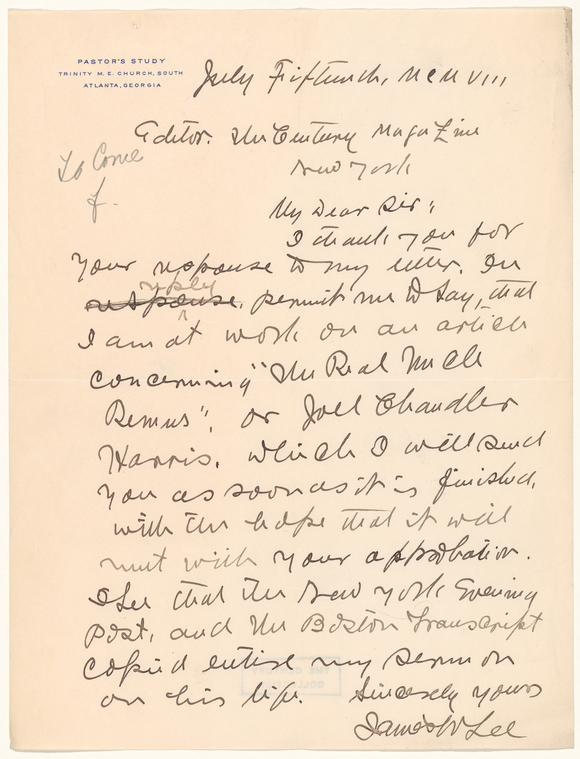 PASTOR'S STUDY
TRINITY M. E. CHURCH, SOUTH
ATLANTA, GEORGIA
July Fifteenth, MCMVIII
Editor. The Century Magazine
New York
To Come
J.
My Dear Sir;
I thank you for
your response to my letter. In
reply
response, permit me to say, that
I am at work on an article
concerning "The Real Uncle
Remus", or Joel Chandler
Harris, which I will send
you as soon as it is finished,
with the hope that it will
meet with your approbation.
I see that the New York Evening
Post, and the Boston Transcript
copied entire my sermon
on his life. Sincerely yours
James W Lee